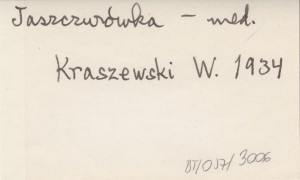 Jaszczurówka – med.
Kraszewski W. 1934
BT/017/3006